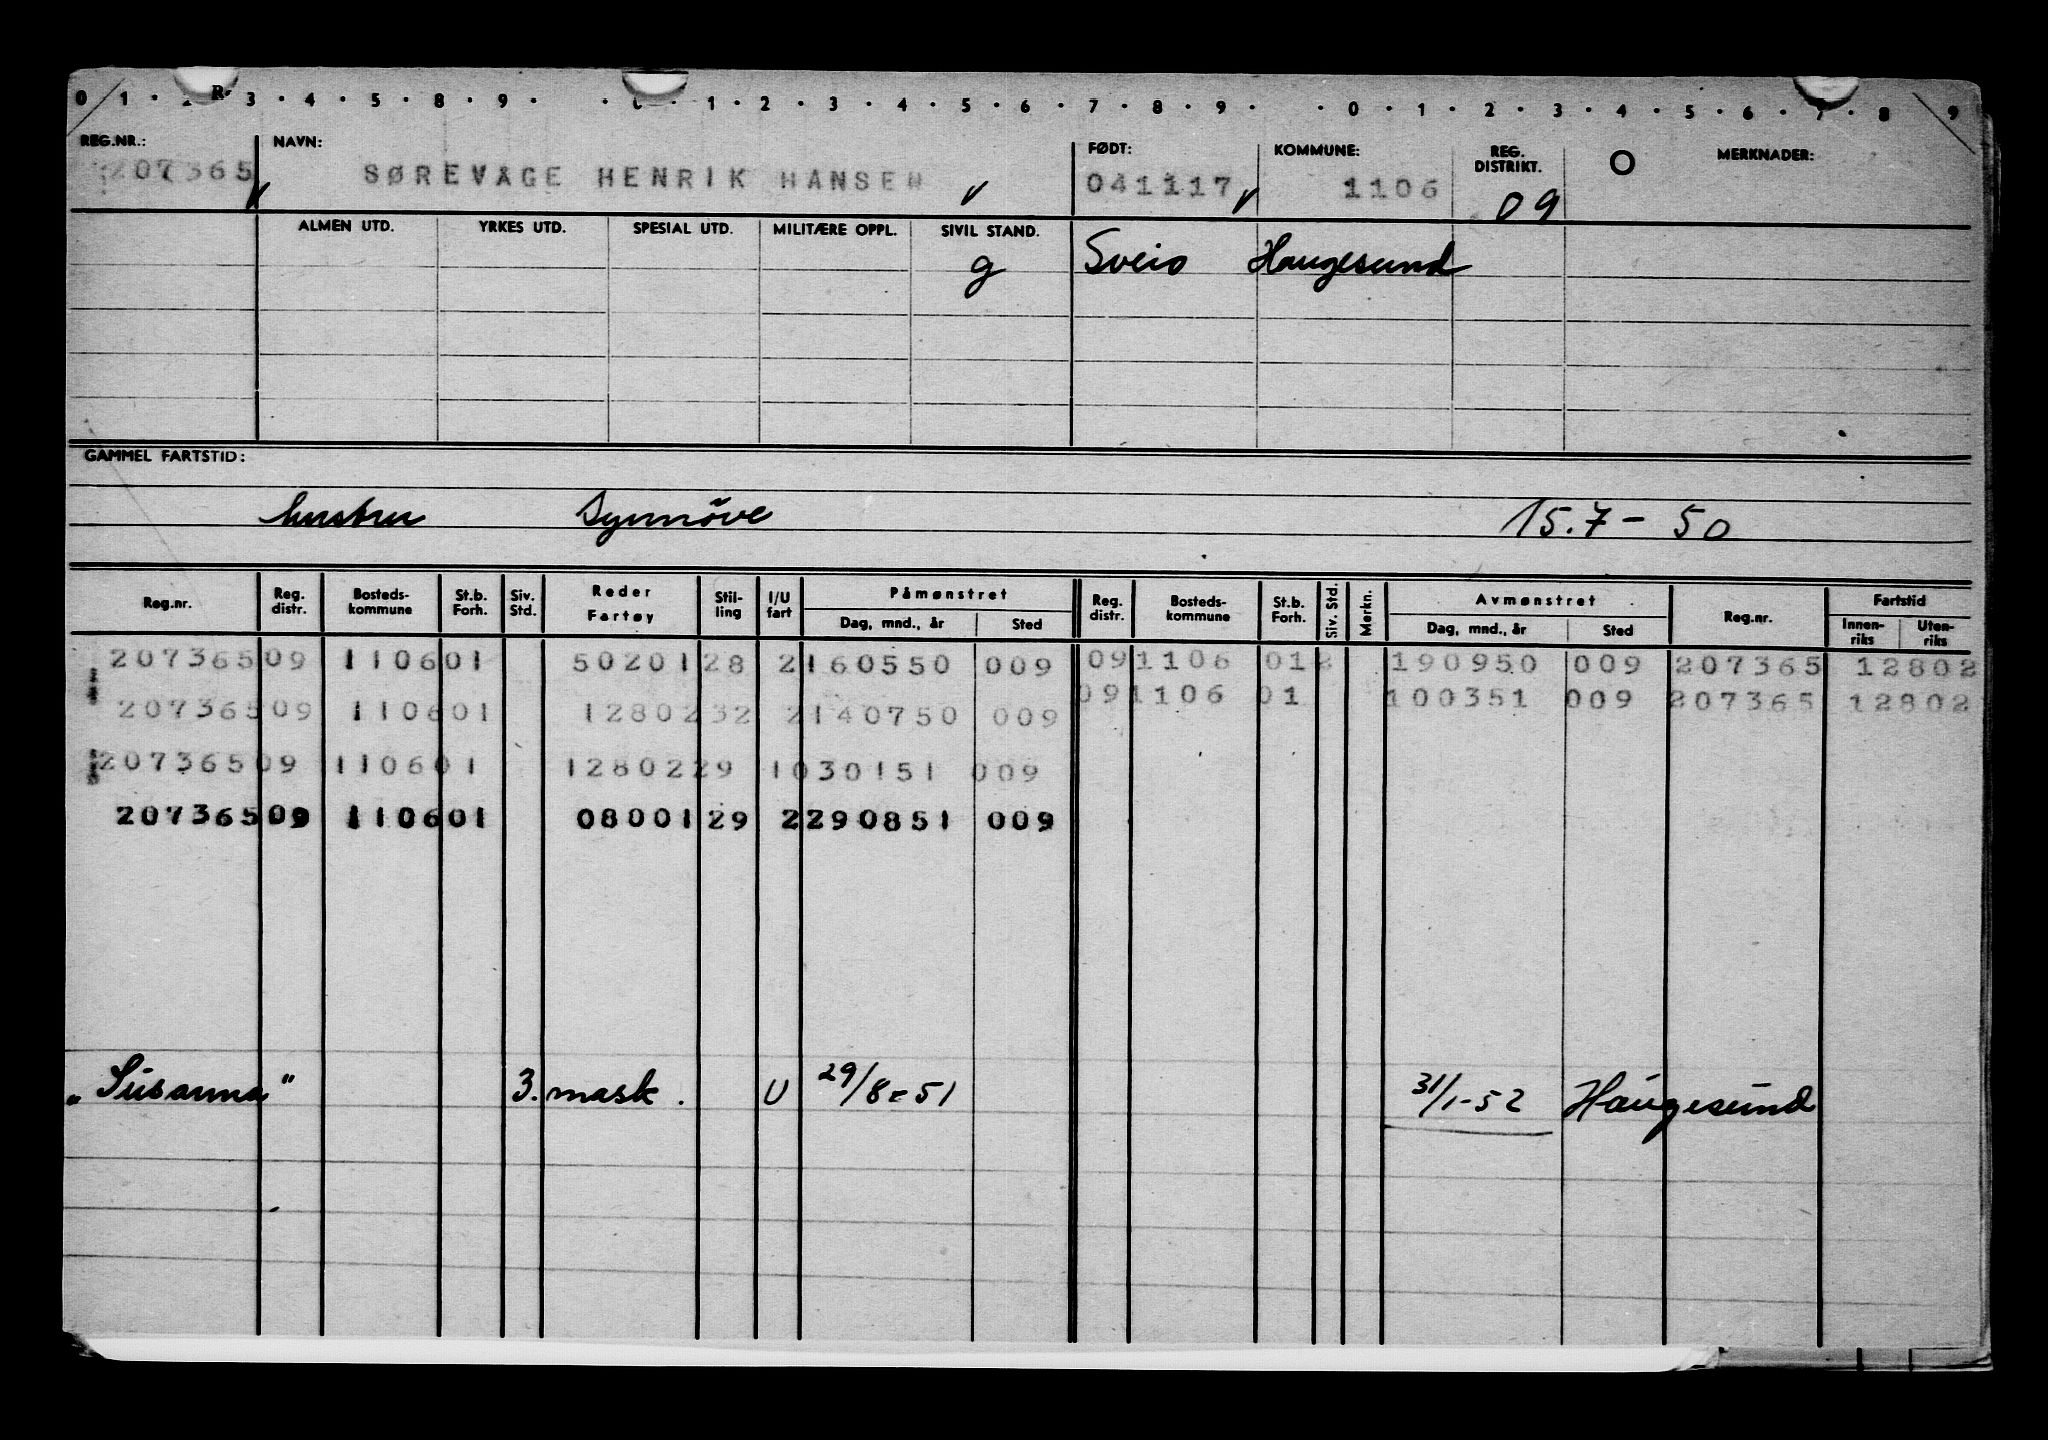 0 1 · 2 R· 3 · 4 · 5 · 8 · 9 · · 0 · 1 · 2 · 3 · 4 · 5 · 6 · 7 · 8 · 9 · · 0 · 1 · 2 · 3 · 4 · 5 · 6 · 7 · 8 9
REG.NR.: NAVN: FØDT: KOMMUNE: REG. DISTRIKT. O MERKNADER:
207365 SØREVÅGE HENRIK HANSEN 041117 1106 09
ALMEN UTD. YRKES UTD. SPESIAL UTD. MILITÆRE OPPL. SIVIL STAND.
g Sveio Haugesund
GAMMEL FARTSTID:
hustru Synnöve 15.7 - 50
Reg.nr. Reg. distr. Bosteds- kommune St.b. Forh. Siv. Std. Reder Fartøy Stil- ling I/U fart Påmønstret Dag, mnd., år Sted Reg. distr. Bosteds- kommune St.b. Forh. Siv. Std. Merkn. Avmønstret Dag, mnd., år Sted Reg.nr. Fartstid Innen- riks Uten- riks
207365 09 1106 01 50201 28 2 160550 009 09 1106 01 2 190950 009 207365 12802
207365 09 1106 01 12802 32 2 140750 009 09 1106 01 100351 009 207365 12802
207365 09 1106 01 12802 29 1 030151 009
207365 09 1106 01 08001 29 2 290851 009
„Susanna" 3. mask. U 29/8-51 31/1-52 Haugesund